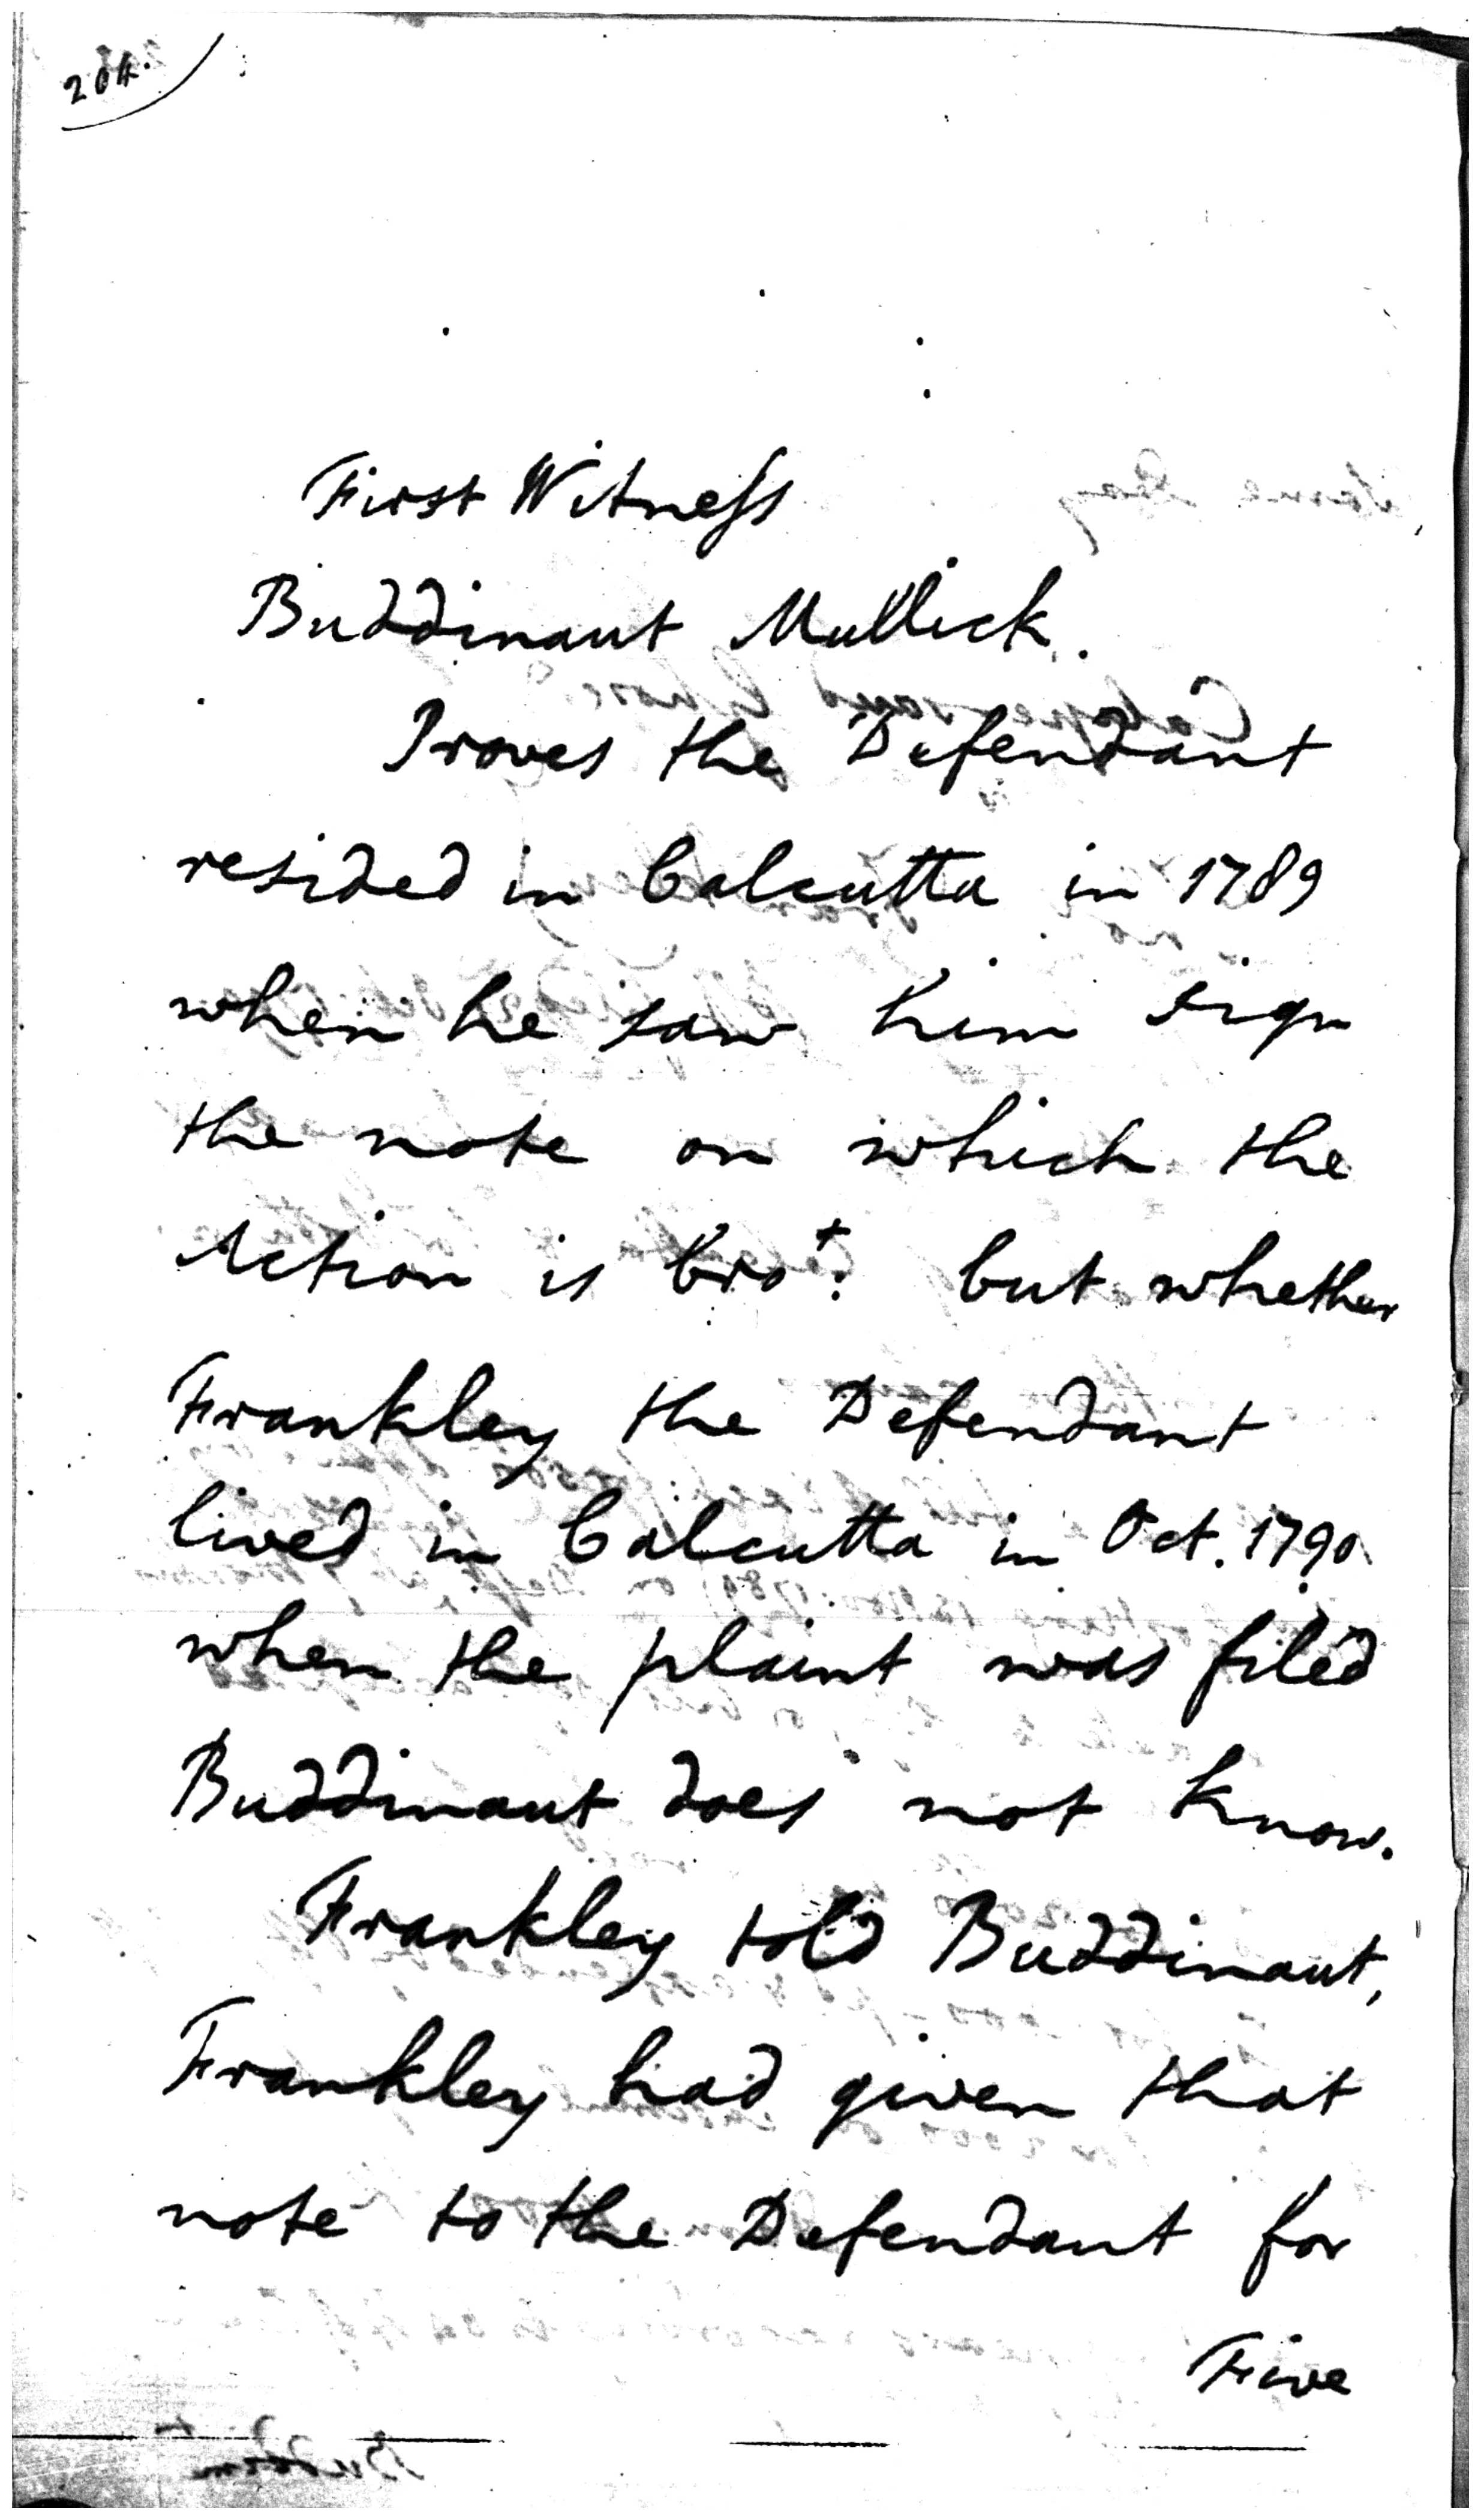 204.
First Witneſs
Buddinaut Mullick.
Proves the Defendant
resided in Calcutta in 1789
when he saw him sign
the note on which the
Action is bro.t but whether
Frankley the Defendant
lived in Calcutta in Oct. 1790.
when the plaint was filed
Buddinaut does not know.
Frankley told Buddinaut,
Frankley had given that
note to the Defendant for
Five